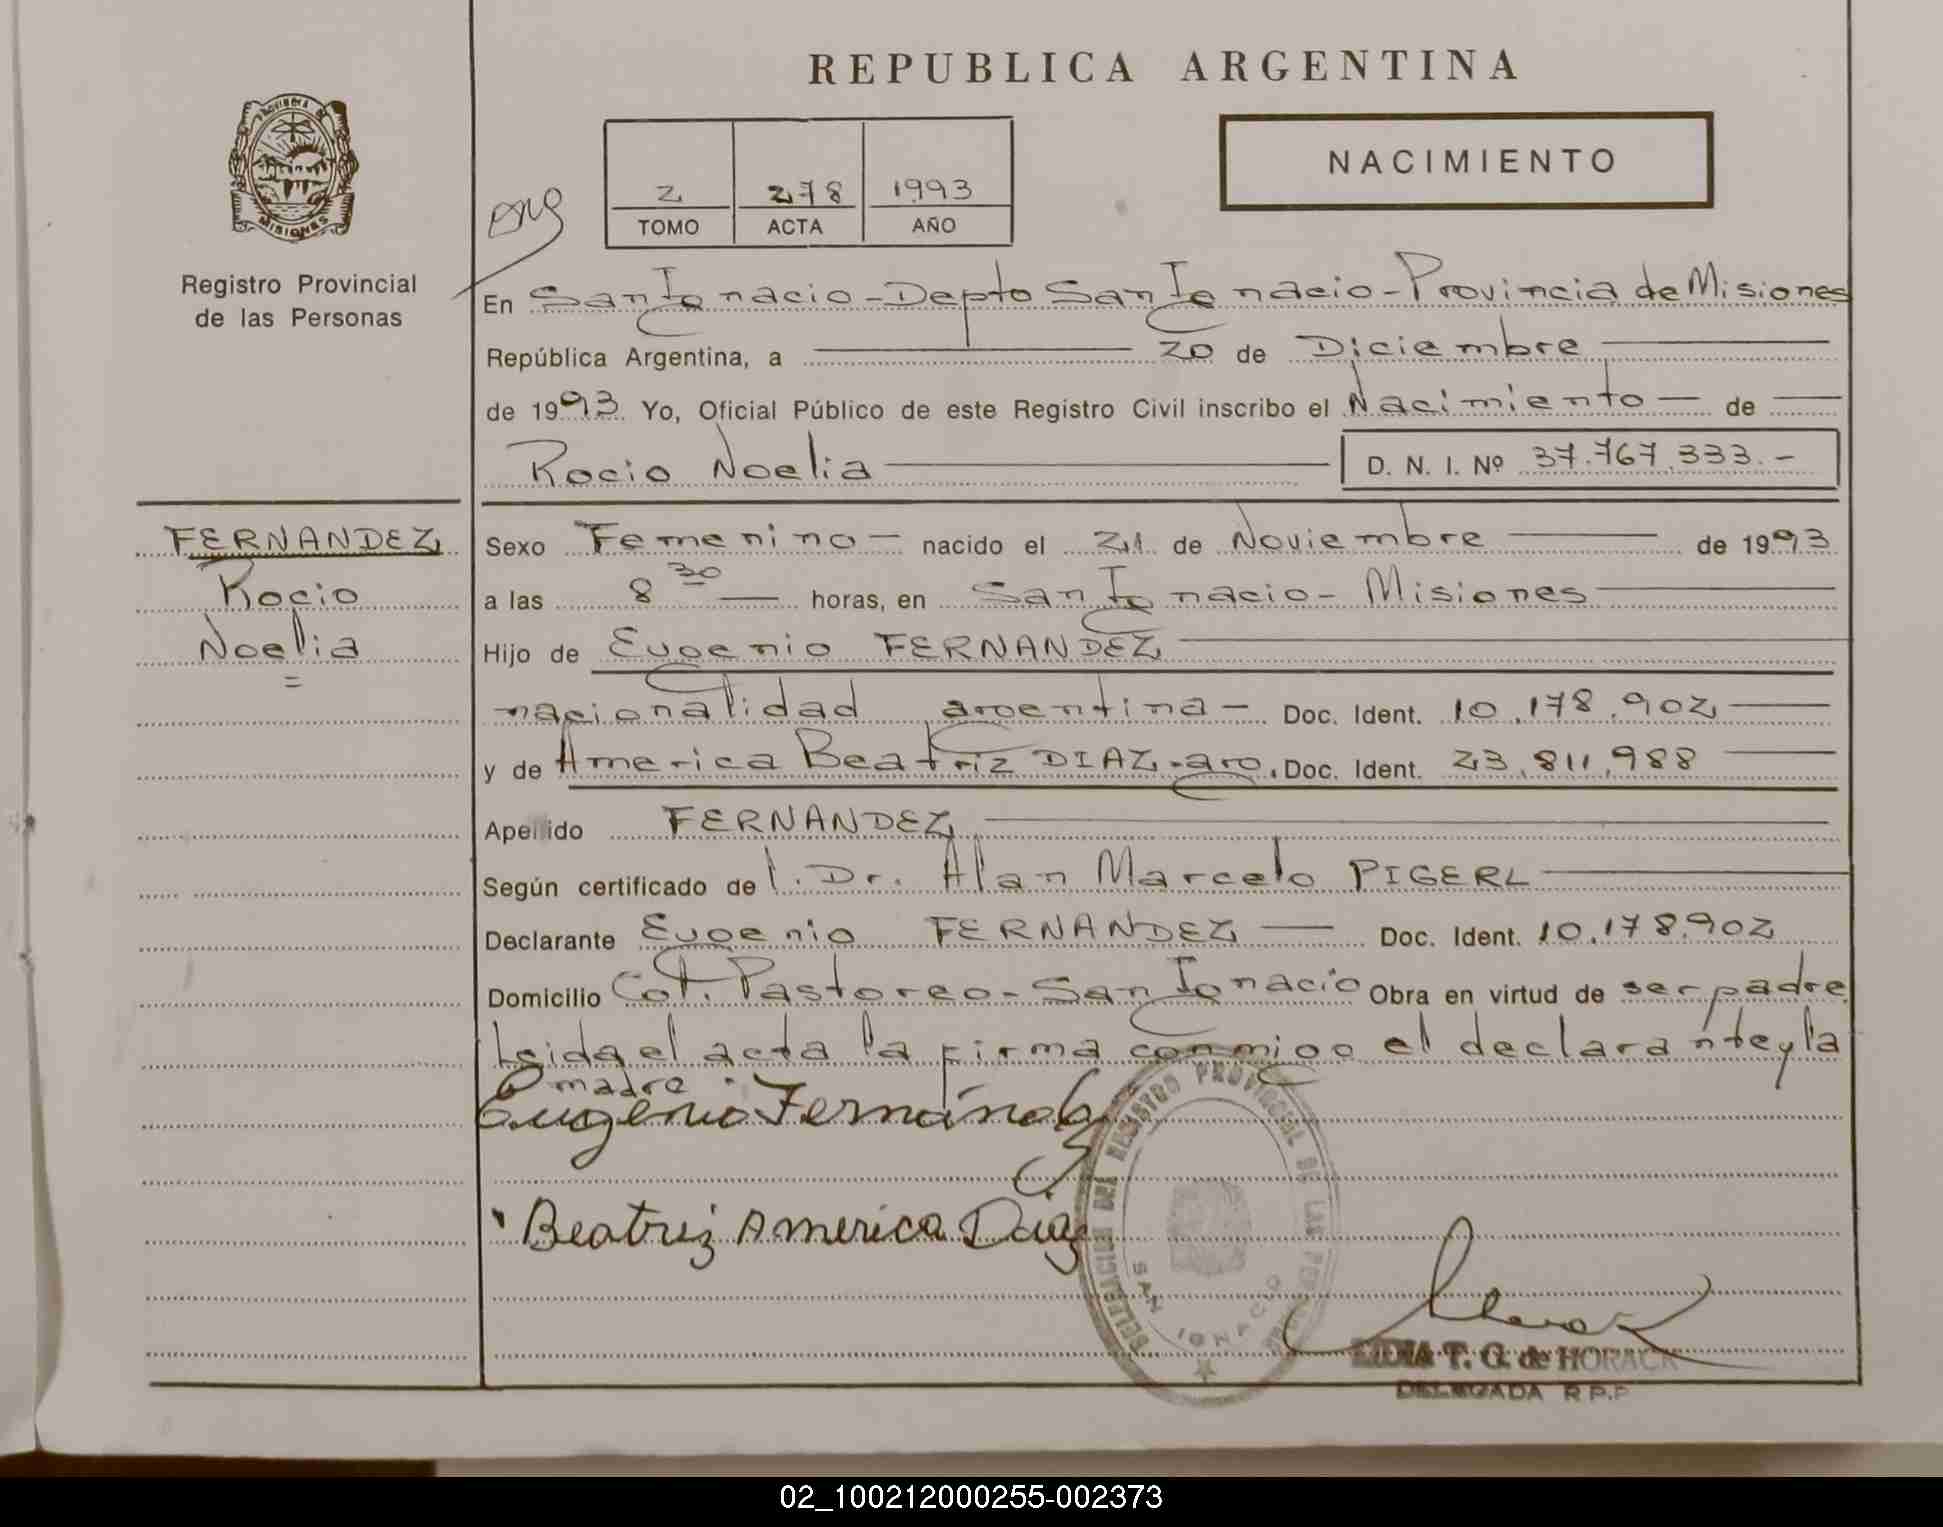 REPUBLICA ARGENTINA
PROVINCIA DE MISIONES
Registro Provincial
de las Personas
NACIMIENTO
2 278 1993
TOMO ACTA AÑO
En San Ignacio - Depto San Ignacio - Provincia de Misiones
República Argentina, a 20 de Diciembre
de 1993 Yo, Oficial Público de este Registro Civil inscribo el Nacimiento — de
Rocio Noelia
D. N. I. Nº 37.767.333.-
FERNANDEZ
Rocio
Noelia
=
Sexo Femenino — nacido el 21 de Noviembre de 1993
a las 8 30 horas, en San Ignacio - Misiones
Hijo de Eugenio FERNANDEZ
nacionalidad argentina - Doc. Ident. 10.178.902
y de America Beatriz DIAZ - arg. Doc. Ident. 23.811.988
Apellido FERNANDEZ
Según certificado de l. Dr. Alan Marcelo PIGERL
Declarante Eugenio FERNANDEZ — Doc. Ident. 10.178.902
Domicilio Col. Pastoreo - San Ignacio Obra en virtud de ser padre.
Leida el acta la firma conmigo el declarante y la
madre.
Eugenio Fernández
Beatriz America Diaz
DELEGACION DEL REGISTRO PROVINCIAL DE LAS PERSONAS
SAN IGNACIO
LIDIA T. G. de HORACK
DELEGADA R.P.P
02_100212000255-002373